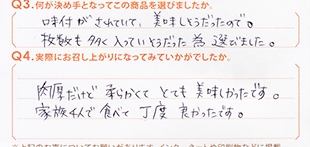 Q3.何が決め手となってこの商品を選びましたか。
味付がされていて、美味しそうだったので。
枚数も多く入っていそうだった為 選びました。
Q4.実際にお召し上がりになってみていかがでしたか。
肉厚だけど 柔らかくて とても 美味しかったです。
家族4人で食べて 丁度 良かったです。